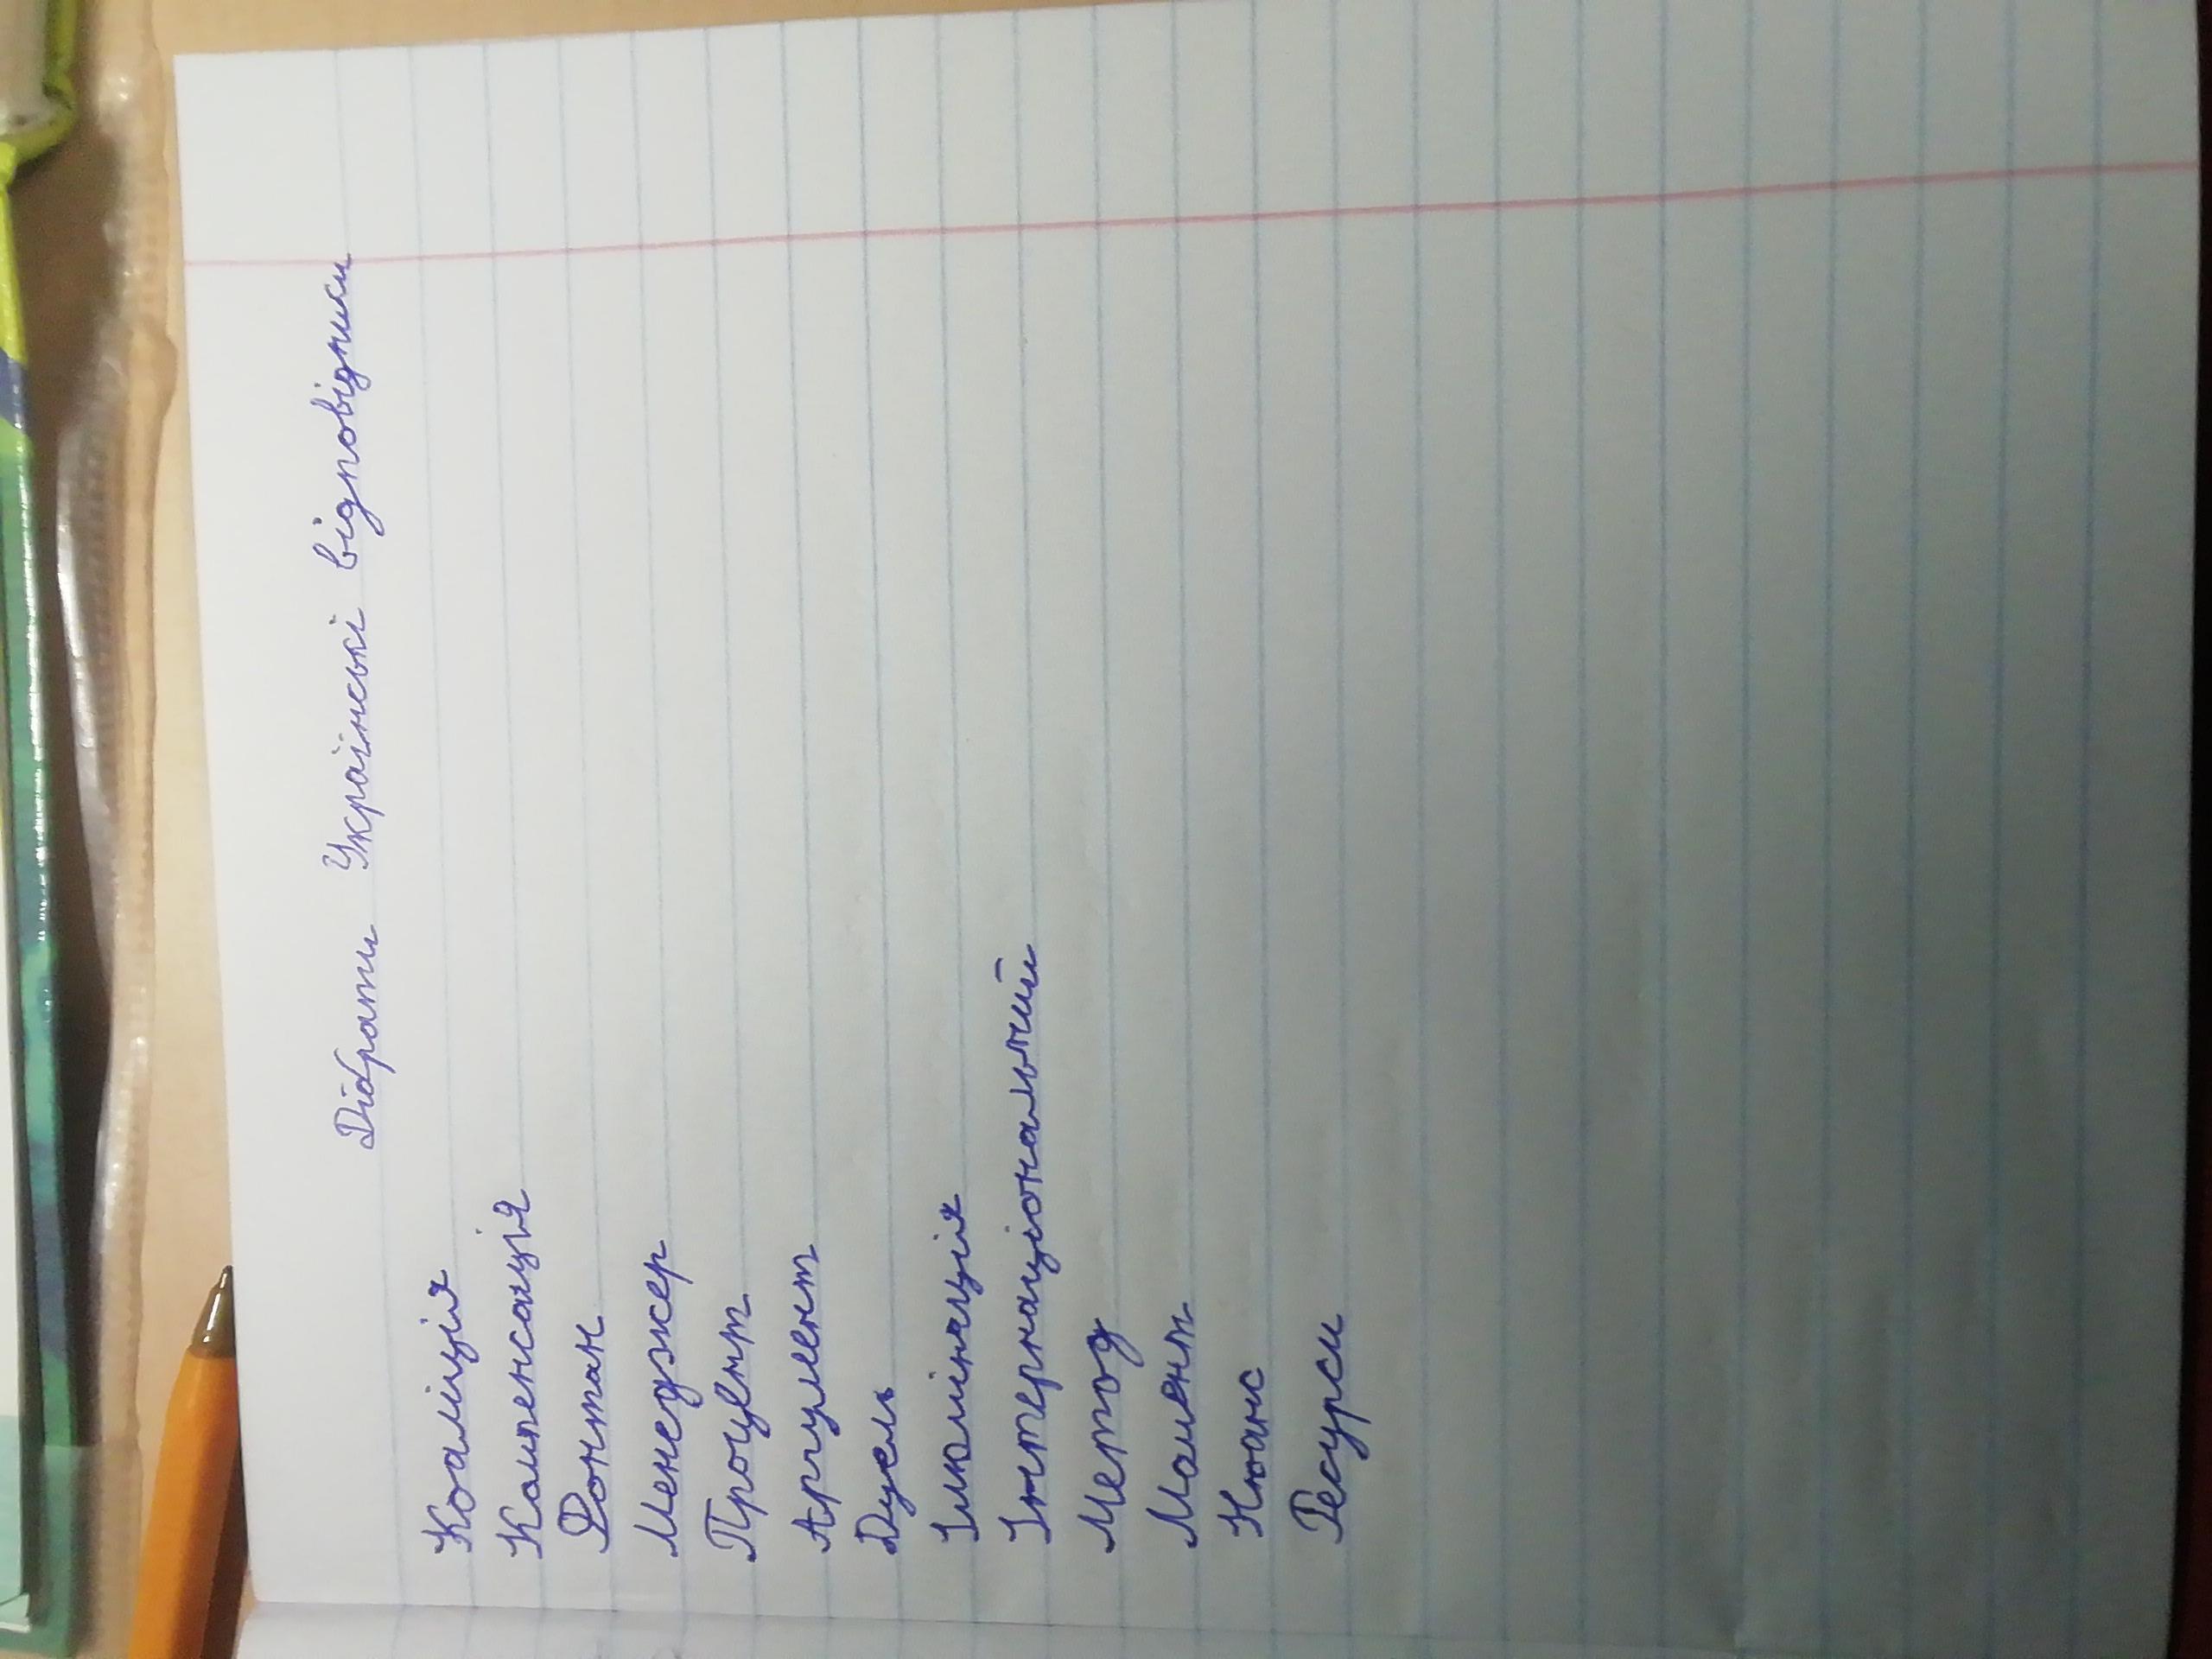 Дібрати Українські відповідники
Коаліція
Компенсація
Фонтан
Менеджер
Процент
Аргумент
Дуель
Ілюмінація
Інтернаціональний
Метод
Момент
Нюанс
Ресурси